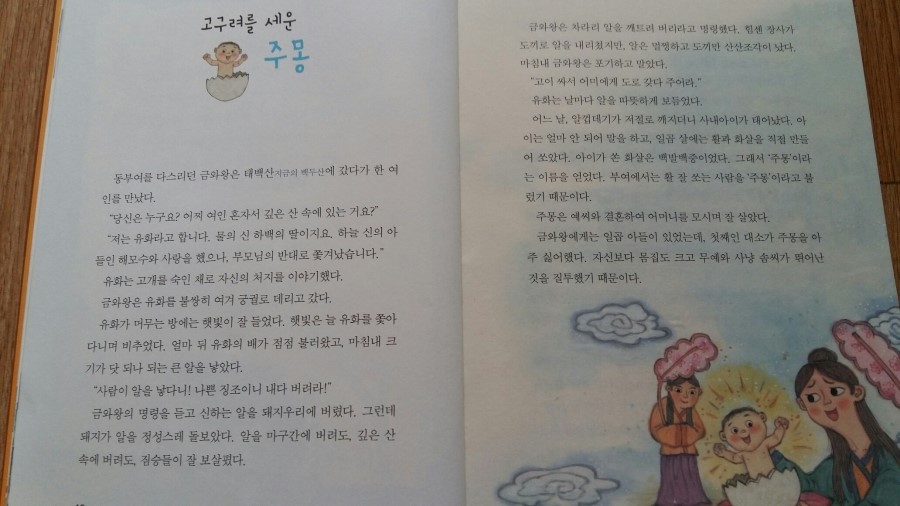 고구려를 세운
주몽
동부여를 다스리던 금와왕은 태백산지금의 백두산에 갔다가 한 여
인를 만났다.
“당신은 누구요? 어찌 여인 혼자서 깊은 산 속에 있는 거요?”
“저는 유화라고 합니다. 물의 신 하백의 딸이지요. 하늘 신의 아
들인 해모수와 사랑을 했으나, 부모님의 반대로 쫓겨났습니다.”
유화는 고개를 숙인 채로 자신의 처지를 이야기했다.
금와왕은 유화를 불쌍히 여겨 궁궐로 데리고 갔다.
유화가 머무는 방에는 햇빛이 잘 들었다. 햇빛은 늘 유화를 쫓아
다니며 비추었다. 얼마 뒤 유화의 배가 점점 불러왔고, 마침내 크
기가 닷 되나 되는 큰 알을 낳았다.
“사람이 알을 낳다니! 나쁜 징조이니 내다 버려라!”
금와왕의 명령을 듣고 신하는 알을 돼지우리에 버렸다. 그런데
돼지가 알을 정성스레 돌보았다. 알을 마구간에 버려도, 깊은 산
속에 버려도, 짐승들이 잘 보살폈다.
금와왕은 차라리 알을 깨트려 버리라고 명령했다. 힘센 장사가
도끼로 알을 내리쳤지만, 알은 멀쩡하고 도끼만 산산조각이 났다.
마침내 금와왕은 포기하고 말았다.
“고이 싸서 어미에게 도로 갖다 주어라.”
유화는 날마다 알을 따뜻하게 보듬었다.
어느 날, 알껍데기가 저절로 깨지더니 사내아이가 태어났다. 아
이는 얼마 안 되어 말을 하고, 일곱 살에는 활과 화살을 직접 만들
어 쏘았다. 아이가 쏜 화살은 백발백중이었다. 그래서 ‘주몽’이라
는 이름을 얻었다. 부여에서는 활 잘 쏘는 사람을 ‘주몽’이라고 불
렀기 때문이다.
주몽은 예씨와 결혼하여 어머니를 모시며 잘 살았다.
금와왕에게는 일곱 아들이 있었는데, 첫째인 대소가 주몽을 아
주 싫어했다. 자신보다 몸집도 크고 무예와 사냥 솜씨가 뛰어난
것을 질투했기 때문이다.